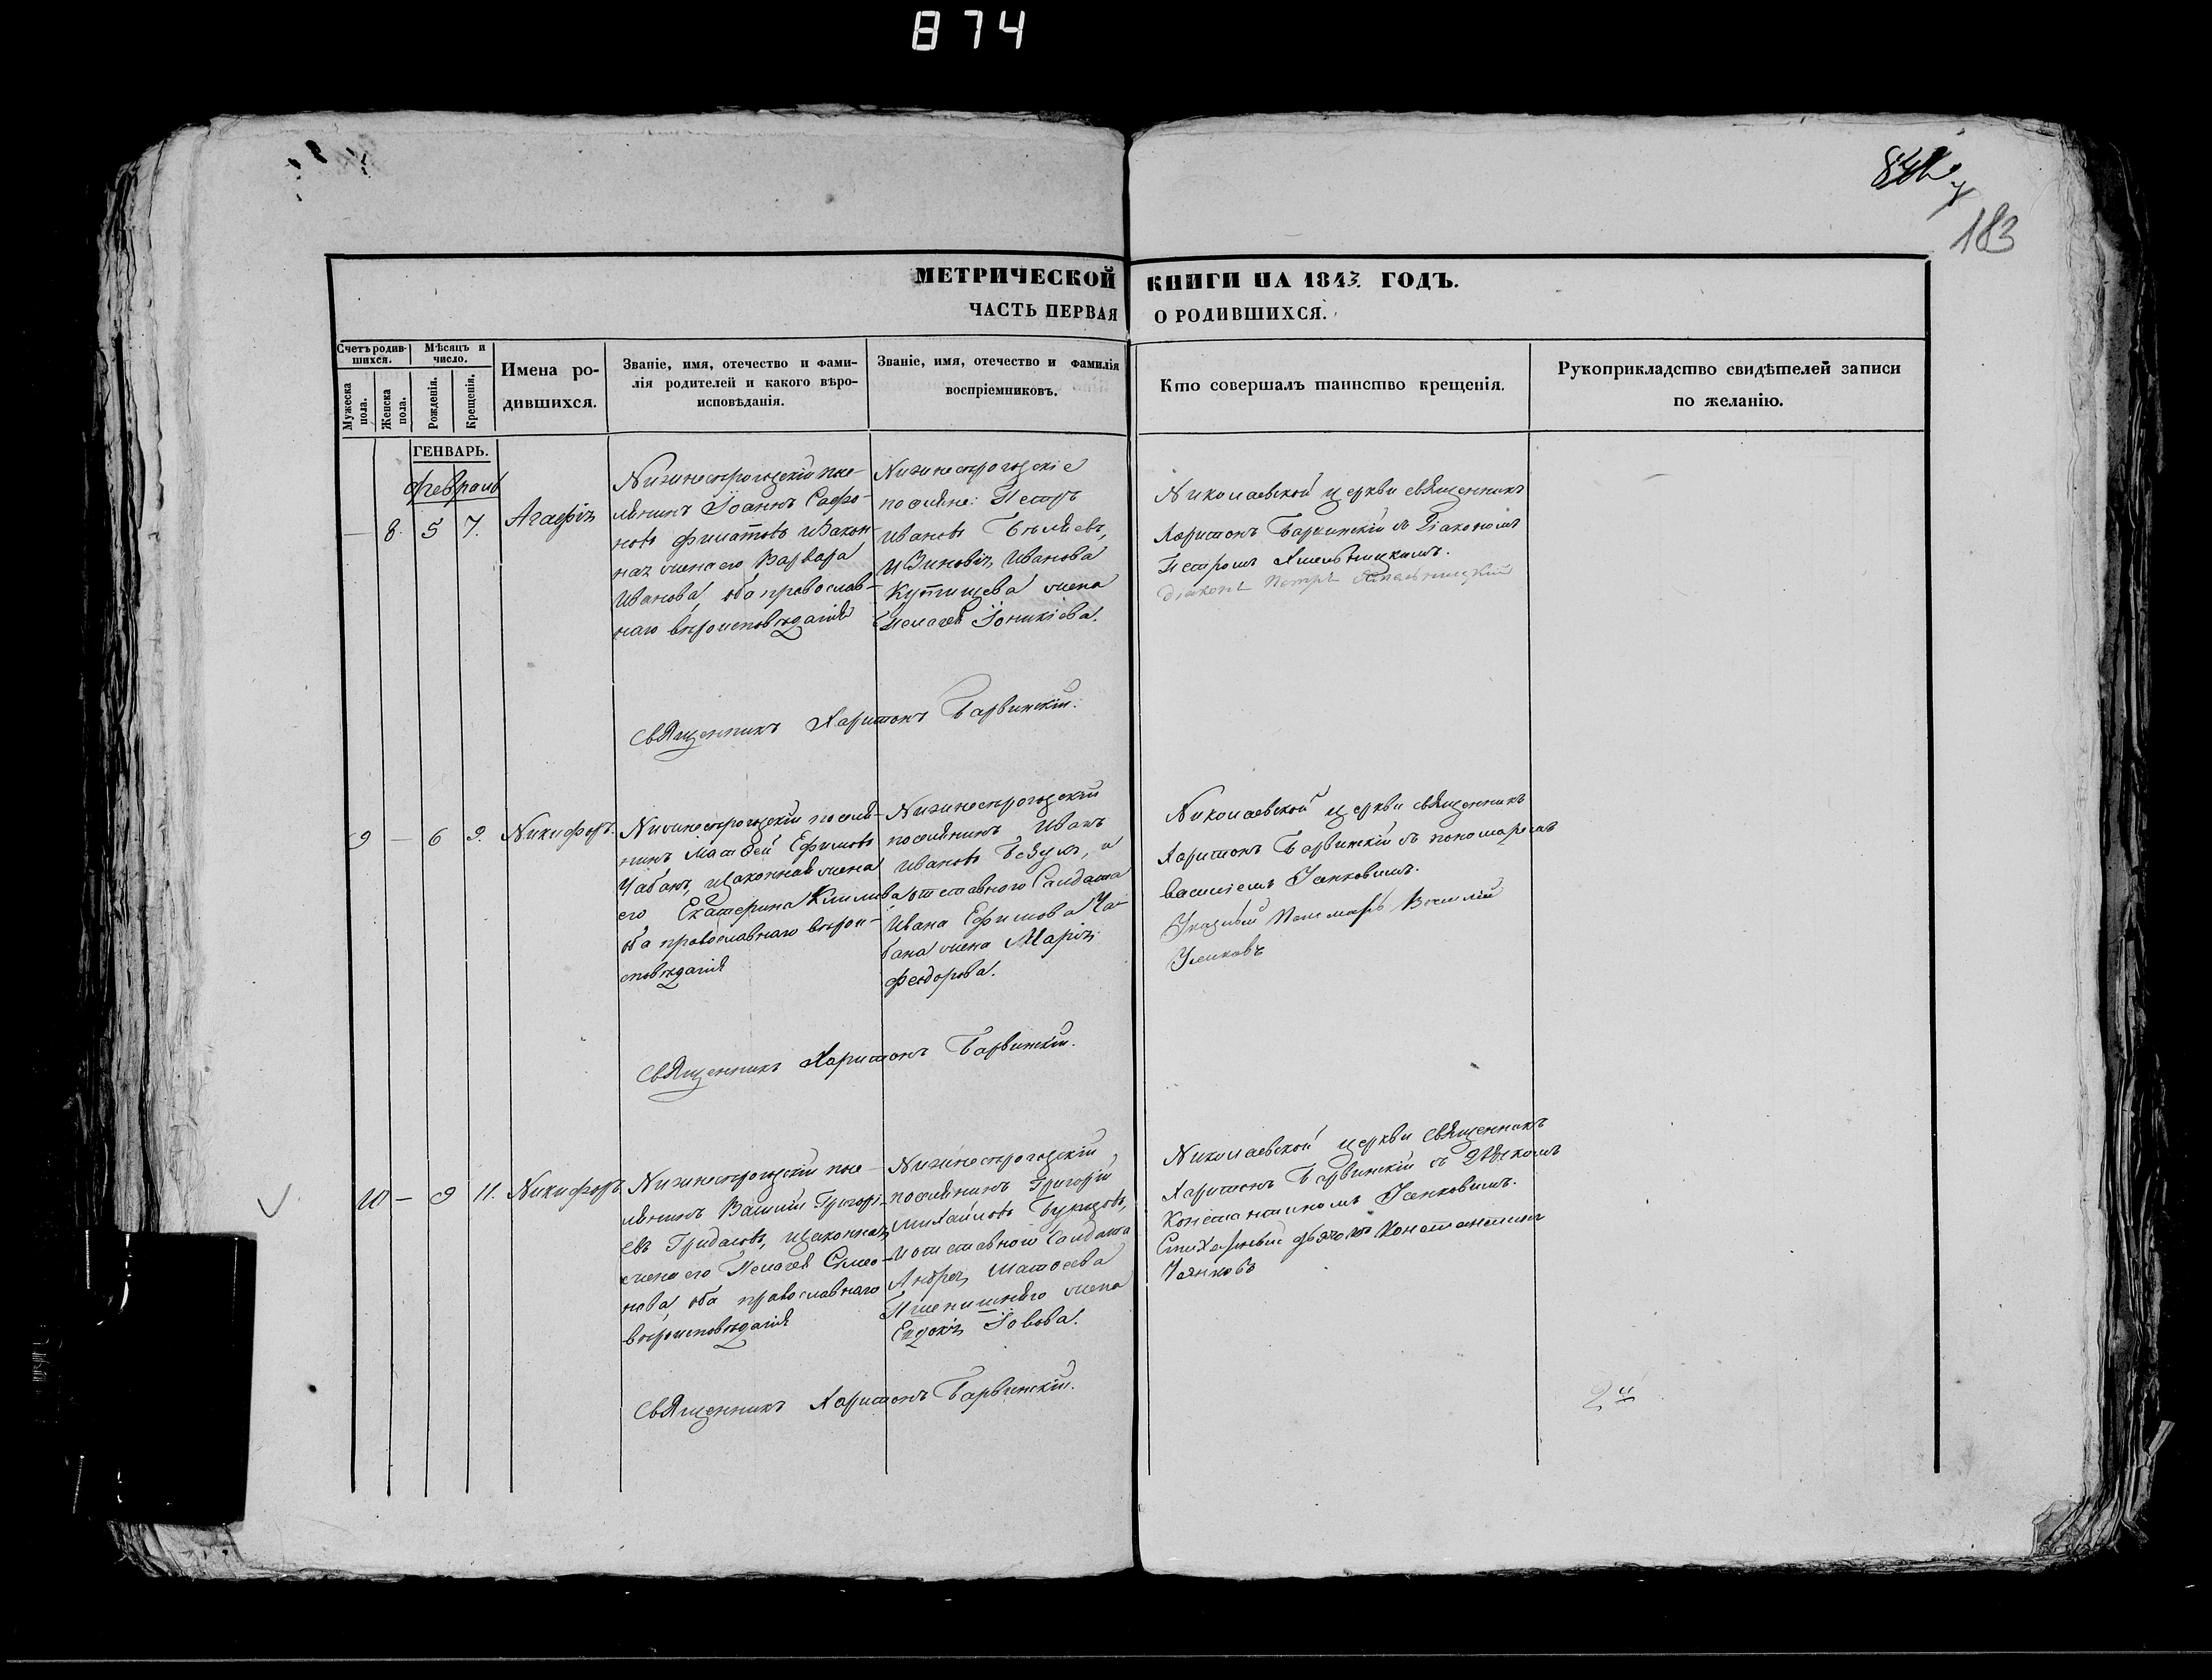 874
183
МЕТРИЧЕСКОЙ КНИГИ НА 1843. ГОДЪ.
ЧАСТЬ ПЕРВАЯ О РОДИВШИХСЯ.
Счетъ родившихся.
Мужеска пола.
Женска пола.
Мѣсяцъ и число.
Рожденія.
Крещенія.
Имена родившихся.
Званіе, имя, отечество и фамилія родителей и какого вѣроисповѣданія.
Званіе, имя, отечество и фамилія воспріемниковъ.
Кто совершалъ таинство крещенія.
Рукоприкладство свидѣтелей записи по желанію.
ГЕНВАРЬ.
Февраль
— 8. 5 7.
Агафія
Нижнесѣрогозскій посе-
лянинъ Іоаннъ Сафро-
новъ Филатовъ и закон-
ная жена его Варвара
Иванова, оба православ-
наго вѣроисповѣданія
Нижнесѣрогозскіе
поселяне: Петръ
Ивановъ Бѣляевъ,
и Зиновія Иванова
жена
Пелагея Іоникіева.
Николаевской церкви священникъ
Харитонъ Барвинскій съ Діакономъ
Петромъ Хмельницкимъ.
Діаконъ Петръ Хмельницкій
Священникъ Харитонъ Барвинскій.
9 — 6 9.
Никифоръ.
Нижнесѣрогозскій поселя-
нинъ Матѳей Ефимовъ
Чабанъ, и законная жена
его Екатерина
оба православнаго вѣрои-
сповѣданія
Нижнесѣрогозскій
поселянинъ Иванъ
Ивановъ и
отставного Салдата
Ивана Ефимова Ча-
бана жена Марія
Феодорова.
Николаевской церкви священникъ
Харитонъ Барвинскій съ пономаремъ
Василіемъ
Василій
Священникъ Харитонъ Барвинскій.
10 — 9 11.
Никифоръ.
Нижнесѣрогозскій посе-
лянинъ Василій Григорі-
евъ Гридасовъ, и законная
жена его Пелагея Симео-
нова, оба православнаго
вѣроисповѣданія
Нижнесѣрогозскій
поселянинъ Григорій
Михайловъ
и отставного Салдата
Андрея Матѳеева
Пшенишняго жена
Евдокія Іовова.
Николаевской церкви священникъ
Харитонъ Барвинскій съ Дьякомъ
Константиномъ
Константинъ
Священникъ Харитонъ Барвинскій.